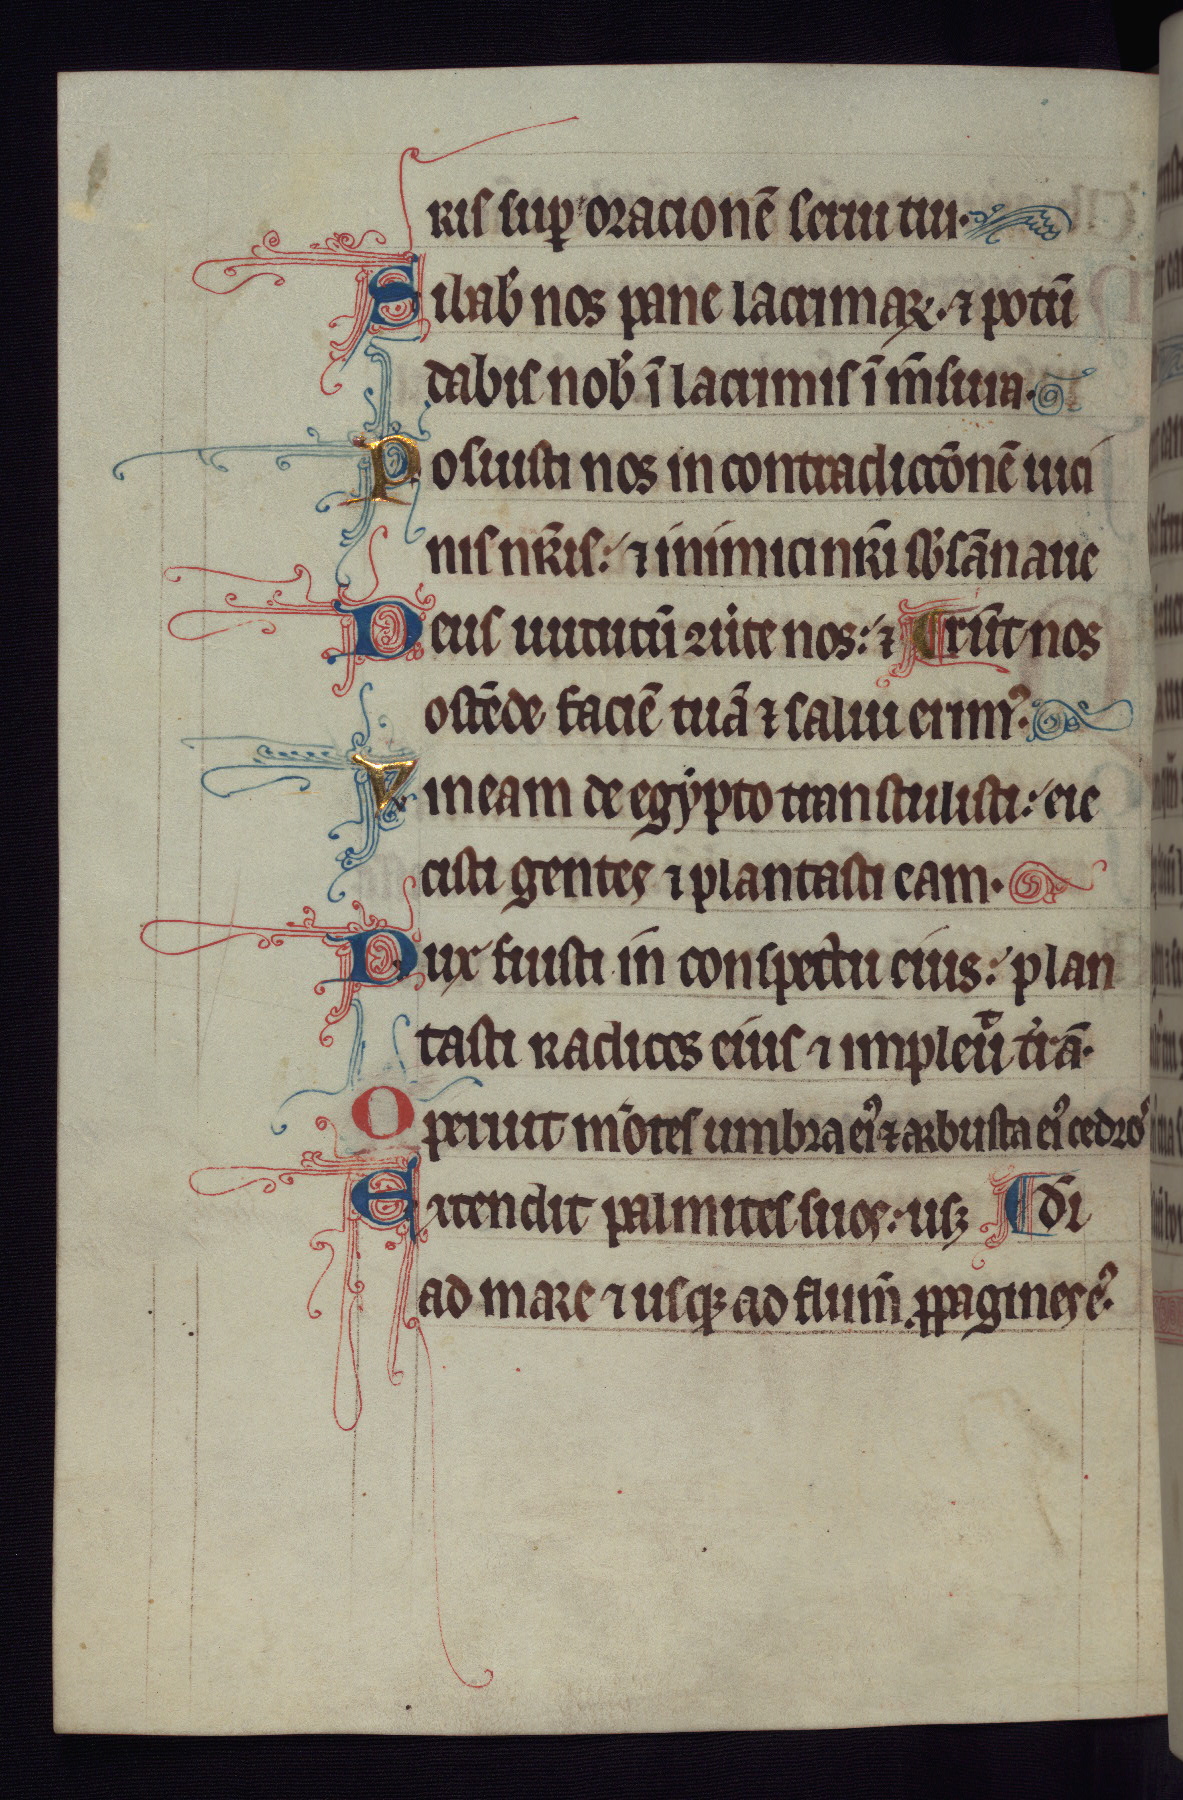 ris sup oracionē serui tui.
Cibab nos pane lacrimaꝝ: ⁊ potū
dabis nob ī lacrimis ī mēsura.
Posuisti nos in contradiccōnē uici
nis nr̄is: ⁊ inimici nr̄i sbsānaue
Deus uirtutū ꝯuͥte nos: ⁊ ¶ rūt nos
ostēde faciē tuā ⁊ salui erimꝰ.
Vineam de egypto transtulisti: eie
cisti gentes ⁊ plantasti eam.
Dux fuisti in conspectu eius: plan
tasti radices eius ⁊ impleuͭ t̄rā.
Operuit mōtes umbra eiꝰ ⁊ arbusta eiꝰ cedroˢ
Extendit palmites suos: usꝫ ¶ dī
ad mare ⁊ usqꝫ ad flum̄ ꝓpagines eꝰ.